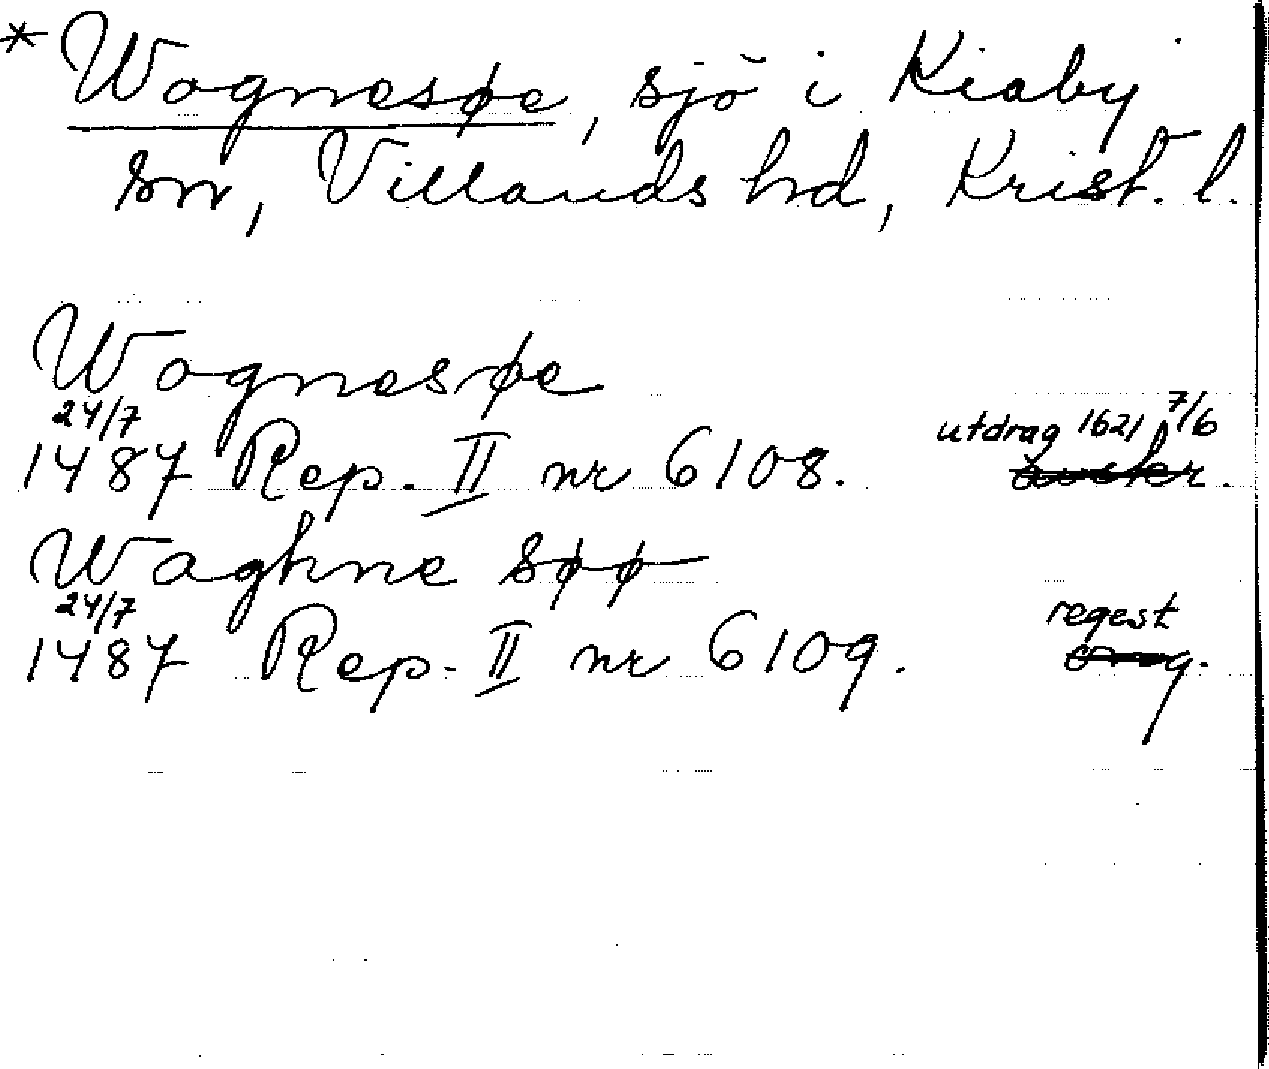 * Wognesøe, sjö i Kiaby
sn, Villands hd, Krist. l.
Wognesøe
24/7
1487 Rep. II nr 6108. utdrag 1621 7/6
Waghne søø
24/7
1487 Rep. II nr 6109. regest